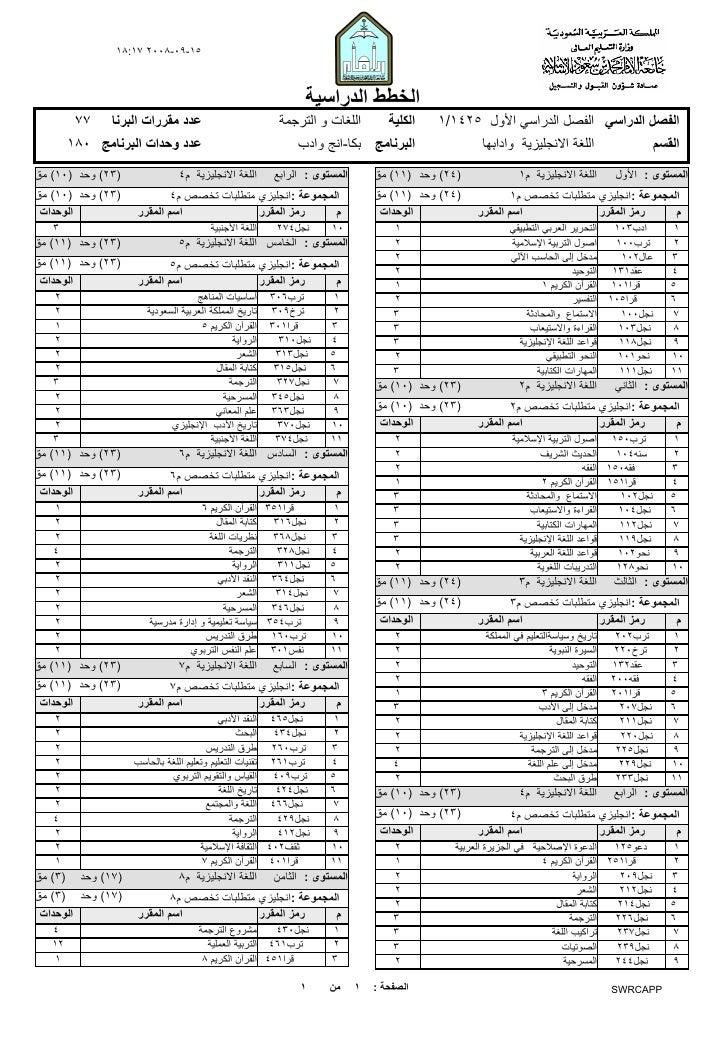 المملكة العربية السعودية
وزارة التعليم العالي
جامعة الإمام محمد بن سعود الإسلامية
عمادة شؤون القبول والتسجيل
١٨:١٧ ٢٠٠٨-٠٩-١٥
الخطط الدراسية
الفصل الدراسي الفصل الدراسي الأول ١/١٤٢٥ الكلية اللغات و الترجمة عدد مقررات البرنا ٧٧
القسم اللغة الانجليزية وادابها البرنامج بكا-انج وادب عدد وحدات البرنامج ١٨٠
المستوى : الأول اللغة الانجليزية م١ (٢٤) وحد (١١) مق
المجموعة :انجليزي متطلبات تخصص م١ (٢٤) وحد (١١) مق
م رمز المقرر اسم المقرر الوحدات
١ ادب١٠٣ التحرير العربي التطبيقي ١
٢ ترب١٠٠ اصول التربية الإسلامية ٢
٣ عال١٠٢ مدخل إلى الحاسب الآلي ٢
٤ عقد١٣١ التوحيد ٢
٥ قرا١٠١ القرآن الكريم ١ ١
٦ قرا١٠٥ التفسير ٢
٧ نجل١٠٠ الاستماع والمحادثة ٣
٨ نجل١٠٣ القراءة والاستيعاب ٣
٩ نجل١١٨ قواعد اللغة الإنجليزية ٣
١٠ نحو١٠١ النحو التطبيقي ٢
١١ نجل١١١ المهارات الكتابية ٣
المستوى : الثاني اللغة الانجليزية م٢ (٢٣) وحد (١٠) مق
المجموعة :انجليزي متطلبات تخصص م٢ (٢٣) وحد (١٠) مق
م رمز المقرر اسم المقرر الوحدات
١ ترب١٥٠ اصول التربية الإسلامية ٢
٢ سنه١٠٤ الحديث الشريف ٢
٣ فقه١٥٠ الفقه ٢
٤ قرا١٥١ القرآن الكريم ٢ ١
٥ نجل١٠٢ الاستماع والمحادثة ٣
٦ نجل١٠٤ القراءة والاستيعاب ٣
٧ نجل١١٢ المهارات الكتابية ٣
٨ نجل١١٩ قواعد اللغة الإنجليزية ٣
٩ نحو١٠٢ قواعد اللغة العربية ٢
١٠ نحو١٢٨ التدريبات اللغوية ٢
المستوى : الثالث اللغة الانجليزية م٣ (٢٤) وحد (١١) مق
المجموعة :انجليزي متطلبات تخصص م٣ (٢٤) وحد (١١) مق
م رمز المقرر اسم المقرر الوحدات
١ ترب٢٠٢ تاريخ وسياسةالتعليم في المملكة ٢
٢ ترخ٢٢٠ السيرة النبوية ٢
٣ عقد١٣٢ التوحيد ٢
٤ فقه٢٠٠ الفقه ٢
٥ قرا٢٠١ القرآن الكريم ٣ ١
٦ نجل٢٠٧ مدخل إلى الأدب ٣
٧ نجل٢١١ كتابة المقال ٢
٨ نجل٢٢٠ قواعد اللغة الإنجليزية ٢
٩ نجل٢٢٥ مدخل إلى الترجمة ٢
١٠ نجل٢٢٩ مدخل إلى علم اللغة ٤
١١ نجل٢٣٣ طرق البحث ٢
المستوى : الرابع اللغة الانجليزية م٤ (٢٣) وحد (١٠) مق
المجموعة :انجليزي متطلبات تخصص م٤ (٢٣) وحد (١٠) مق
م رمز المقرر اسم المقرر الوحدات
١ دعو١٢٥ الدعوة الإصلاحية في الجزيرة العربية ٢
٢ قرا٢٥١ القرآن الكريم ٤ ١
٣ نجل٢٠٩ الرواية ٢
٤ نجل٢١٢ الشعر ٢
٥ نجل٢١٤ كتابة المقال ٢
٦ نجل٢٢٦ الترجمة ٣
٧ نجل٢٣٧ تراكيب اللغة ٣
٨ نجل٢٣٩ الصوتيات ٣
٩ نجل٢٤٤ المسرحية ٢
المستوى : الرابع اللغة الانجليزية م٤ (٢٣) وحد (١٠) مق
المجموعة :انجليزي متطلبات تخصص م٤ (٢٣) وحد (١٠) مق
م رمز المقرر اسم المقرر الوحدات
١٠ نجل٢٧٤ اللغة الأجنبية ٣
المستوى : الخامس اللغة الانجليزية م٥ (٢٣) وحد (١١) مق
المجموعة :انجليزي متطلبات تخصص م٥ (٢٣) وحد (١١) مق
م رمز المقرر اسم المقرر الوحدات
١ ترب٣٠٦ أساسيات المناهج ٢
٢ ترخ٣٠٩ تاريخ المملكة العربية السعودية ٢
٣ قرا٣٠١ القرآن الكريم ٥ ١
٤ نجل٣١٠ الرواية ٢
٥ نجل٣١٣ الشعر ٢
٦ نجل٣١٥ كتابة المقال ٢
٧ نجل٣٢٧ الترجمة ٣
٨ نجل٣٤٥ المسرحية ٢
٩ نجل٣٦٣ علم المعاني ٢
١٠ نجل٣٧٠ تاريخ الأدب الإنجليزي ٢
١١ نجل٣٧٤ اللغة الأجنبية ٣
المستوى : السادس اللغة الانجليزية م٦ (٢٣) وحد (١١) مق
المجموعة :انجليزي متطلبات تخصص م٦ (٢٣) وحد (١١) مق
م رمز المقرر اسم المقرر الوحدات
١ قرا٣٥١ القرآن الكريم ٦ ١
٢ نجل٣١٦ كتابة المقال ٢
٣ نجل٣٦٨ نظريات اللغة ٢
٤ نجل٣٢٨ الترجمة ٤
٥ نجل٣١١ الرواية ٢
٦ نجل٣٦٤ النقد الأدبي ٢
٧ نجل٣١٤ الشعر ٢
٨ نجل٣٤٦ المسرحية ٢
٩ ترب٣٥٤ سياسة تعليمية و إدارة مدرسية ٢
١٠ ترب١٦٠ طرق التدريس ٢
١١ نفس٣٠١ علم النفس التربوي ٢
المستوى : السابع اللغة الانجليزية م٧ (٢٣) وحد (١١) مق
المجموعة :انجليزي متطلبات تخصص م٧ (٢٣) وحد (١١) مق
م رمز المقرر اسم المقرر الوحدات
١ نجل٤٦٥ النقد الأدبي ٢
٢ نجل٤٣٤ البحث ٢
٣ ترب٢٦٠ طرق التدريس ٢
٤ ترب٢٦١ تقنيات التعليم وتعليم اللغة بالحاسب ٢
٥ ترب٤٠٩ القياس والتقويم التربوي ٢
٦ نجل٤٢٤ تاريخ اللغة ٢
٧ نجل٤٦٦ اللغة والمجتمع ٢
٨ نجل٤٢٩ الترجمة ٤
٩ نجل٤١٢ الرواية ٢
١٠ ثقف٤٠٢ الثقافة الإسلامية ٢
١١ قرا٤٠١ القرآن الكريم ٧ ١
المستوى : الثامن اللغة الانجليزية م٨ (١٧) وحد (٣) مق
المجموعة :انجليزي متطلبات تخصص م٨ (١٧) وحد (٣) مق
م رمز المقرر اسم المقرر الوحدات
١ نجل٤٣٠ مشروع الترجمة ٤
٢ ترب٤٦١ التربية العملية ١٢
٣ قرا٤٥١ القرآن الكريم ٨ ١
الصفحة : ١ من ١
SWRCAPP